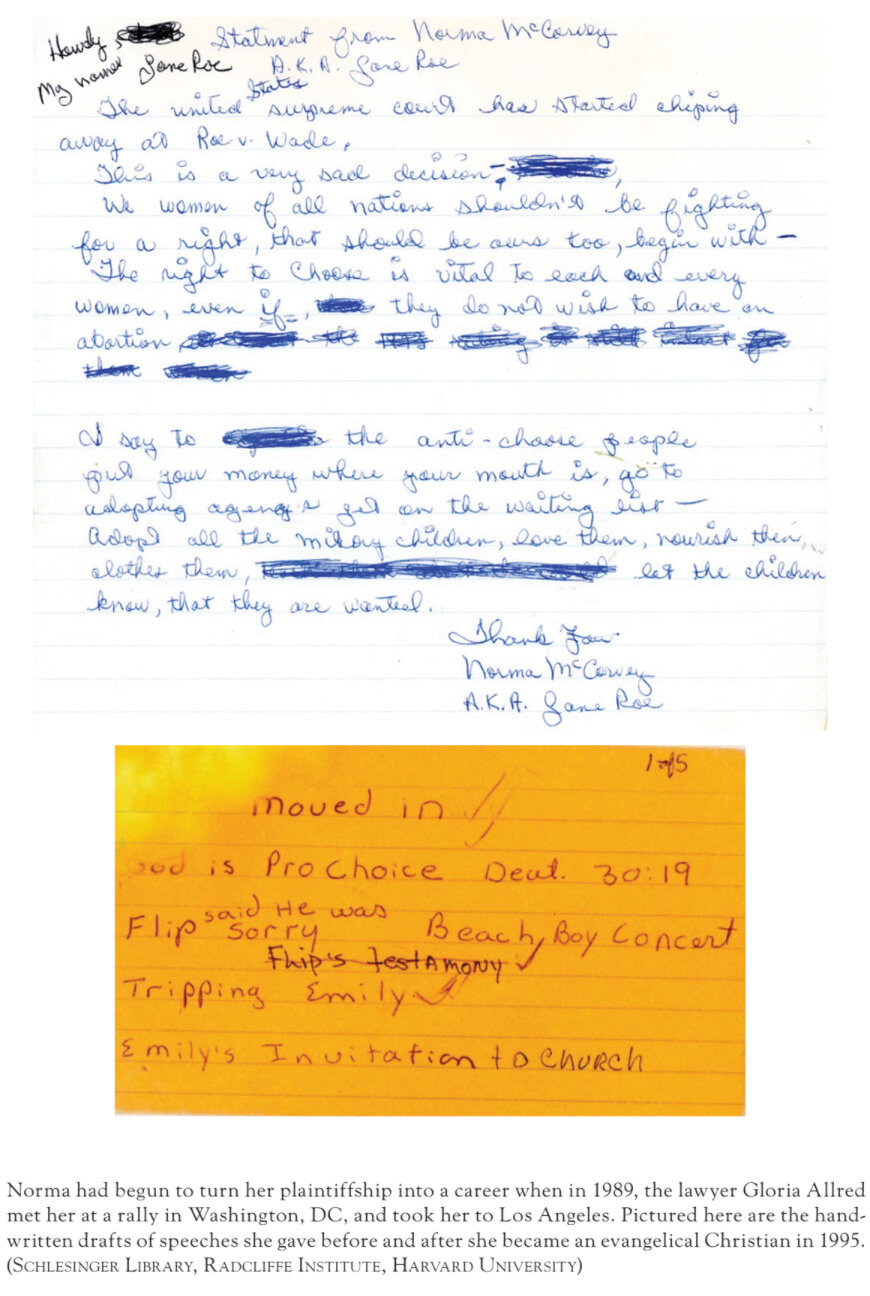 Howdy, Statment from Norma McCorvey
My name Jane Roe A.K.A. Jane Roe
States
The united supreme court has started chiping
away at Roe v. Wade.
This is a very sad decision,
We women of all nations shouldn't be fighting
for a right, that should be ours too, begin with —
The right to Choose is vital to each and every
women, even if, they do not wish to have an
abortion
I say to the anti-choose people
put your money where your mouth is, go to
adopting agency's get on the waiting list —
Adopt all the children, love them, nourish then,
clothes them, let the children
know, that they are wanted.
Thank You
Norma McCorvey
A.K.A. Jane Roe
1 of 5
moved in
God is ProChoice Deut. 30:19
said He was
Flip sorry Beach Boy Concert
Flip's testAmony
Tripping Emily
Emily's Invitation to CHURCH
Norma had begun to turn her plaintiffship into a career when in 1989, the lawyer Gloria Allred
met her at a rally in Washington, DC, and took her to Los Angeles. Pictured here are the hand-
written drafts of speeches she gave before and after she became an evangelical Christian in 1995.
(Schlesinger Library, Radcliffe Institute, Harvard University)